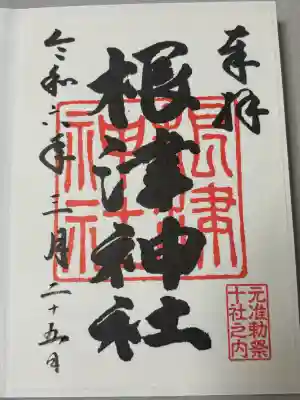 奉拝
根津神社
令和六年三月二十五日
根津神社
元准勅祭
十社之内